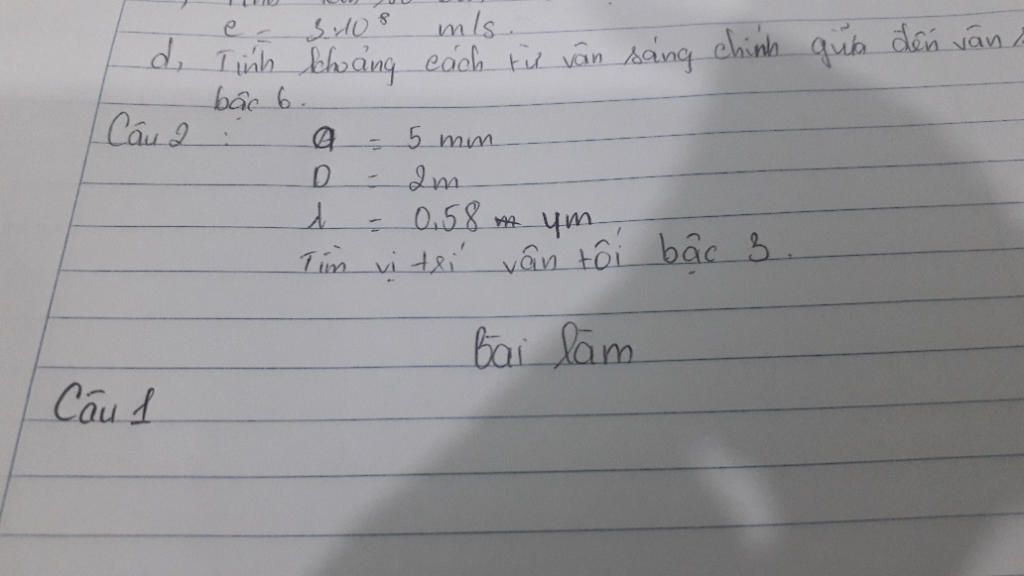 c = 3.10⁸ m/s.
d, Tính khoảng cách từ vân sáng chính giữa đến vân
bậc 6.
Câu 2 : a = 5 mm
D = 2m
λ = 0,58 μm
Tìm vị trí vân tối bậc 3.
Bài làm
Câu 1